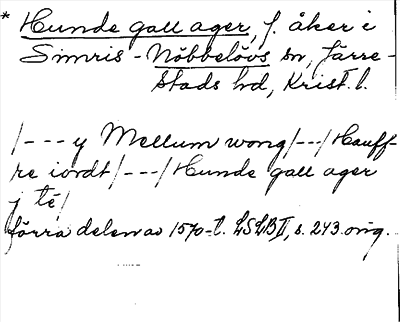 * Hunde gall ager, f. åker i
Simris-Nöbbelövs sn, Järre-
stads hd, Krist. l.
/---y Mellum wong/---/Hauff-
re iordt/---/Hunde gall ager
j té/
förra delen av 1570-t. LSLB II, s. 243. orig.